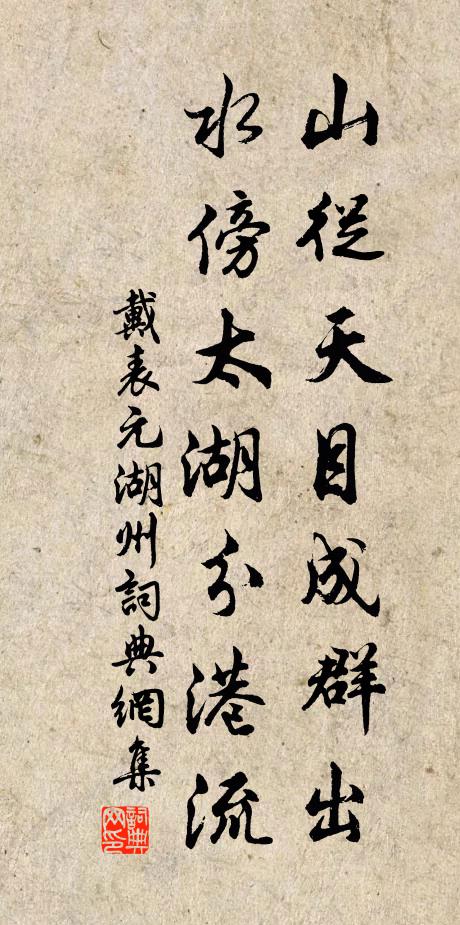 山從天目成群出
水傍太湖分港流
戴表元湖州詞典網集
詞典网印